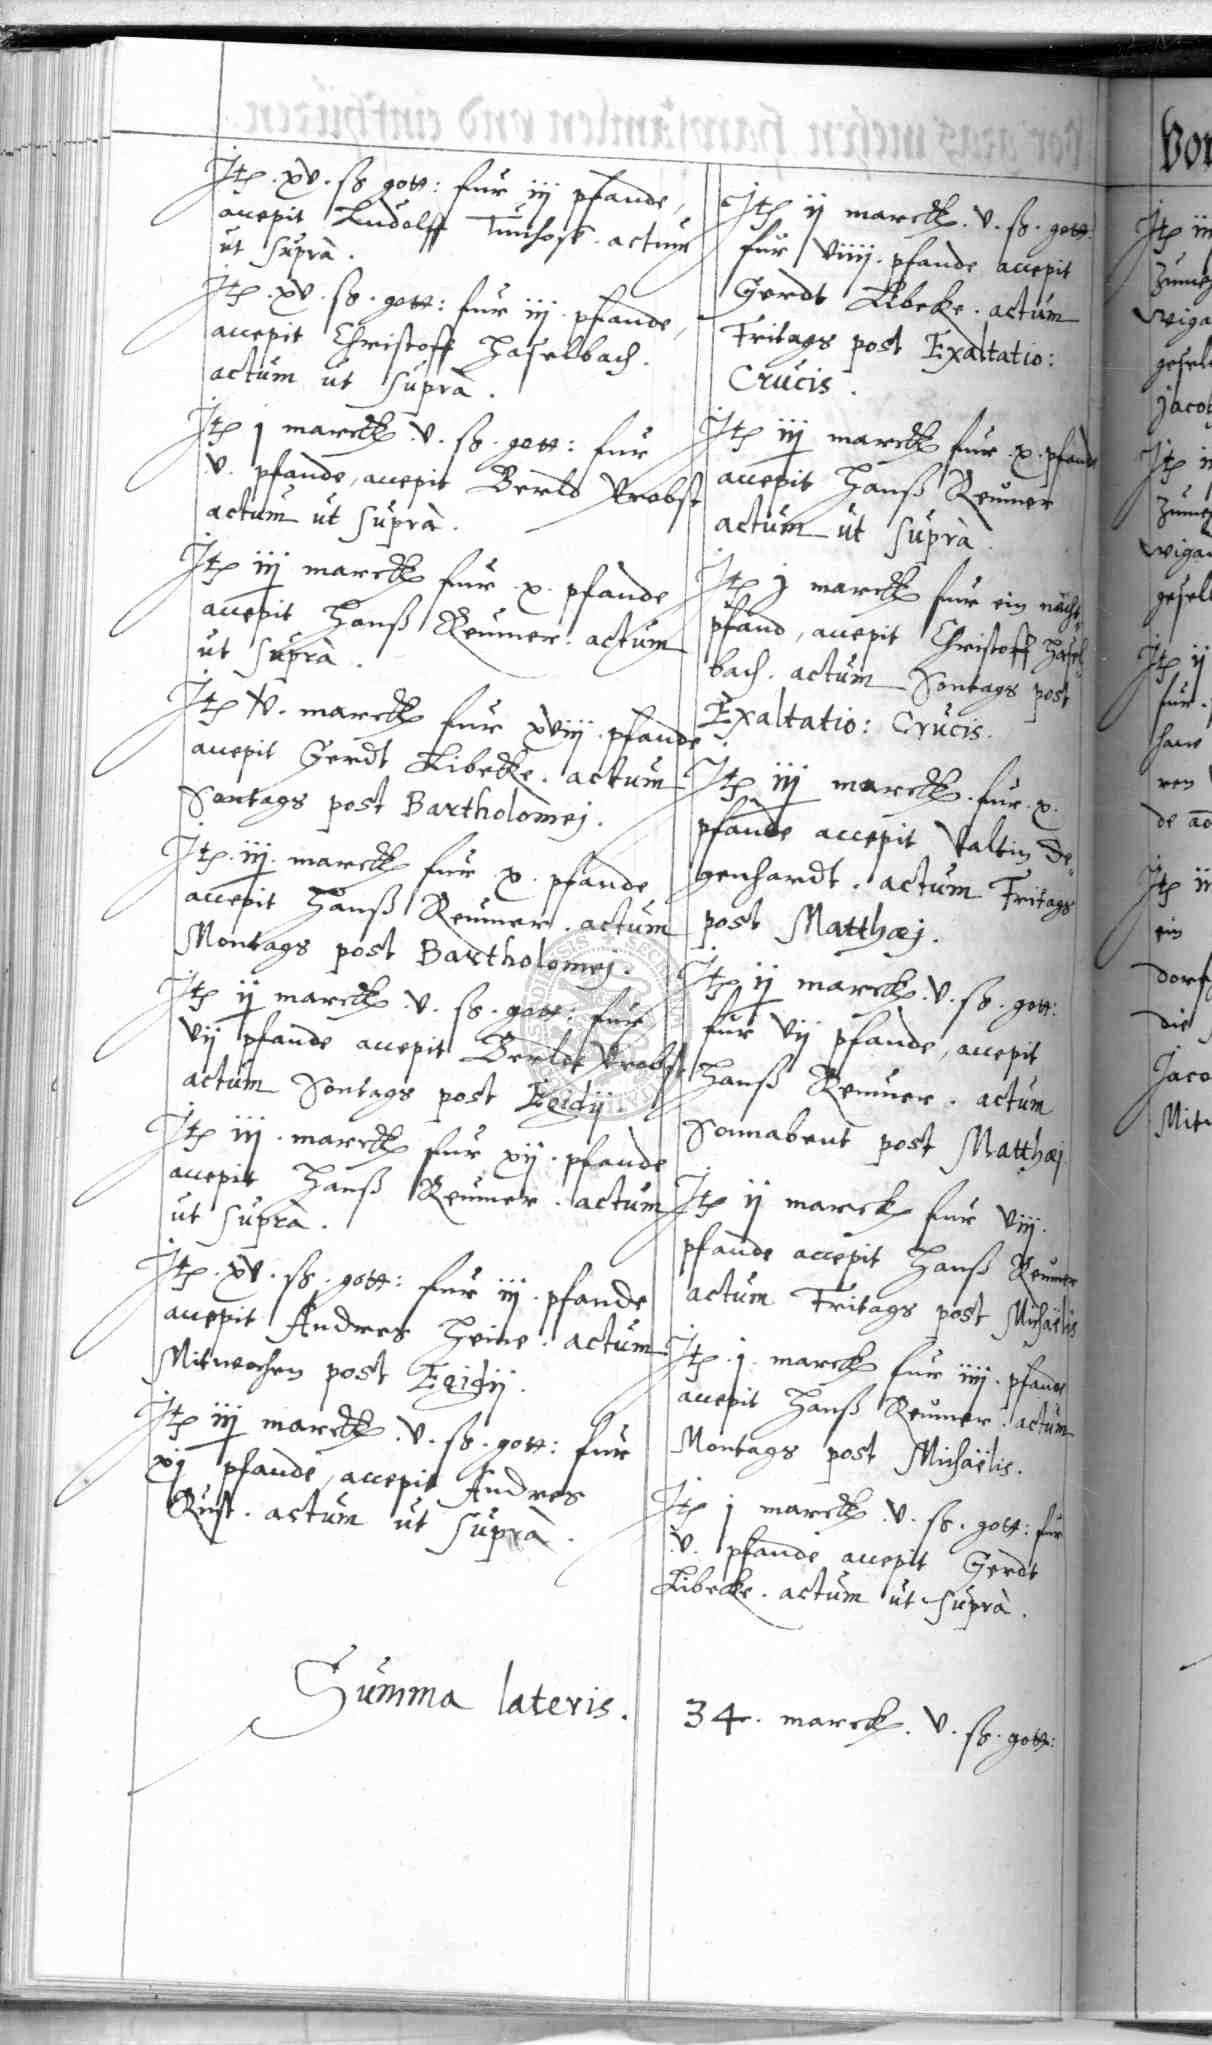 Itē . xv . ß gott: fur iij pfande,
accepit Ludolff Tunhose . actum
ut suprà .
Itē . xv . ß . gott: fur iij . pfande,
accepit Christoff Haselbach .
actum ut suprà .
Itē j marck . v . ß . gott: fur
v . pfande, accepit Berld Probst
actum ut suprà .
Itē iij marck fur . x . pfande
accepit Hanß Reumer . actum
ut suprà .
Itē v . marck fur xviij . pfande
accepit Gerdt Libecke . actum
Sontags post Bartholomej .
Itē . iij . marck fur . x . pfande
accepit Hanß Reumer . actum
Montags post Bartholomej .
Itē ij marck . v . ß . gott: fur
vij pfande accepit Berldt Probst
actum Sontags post Egidij .
Itē iij . marck fur xij . pfande
accepit Hanß Reumer . actum
ut suprà .
Itē . xv . ß . gott: fur iij . pfande
accepit Andres Heine . actum
Mitwochen post Egidij .
Itē iij marck . v . ß . gott: fur
xj pfande, accepit Andres
Rust . actum ut suprà .
Itē ij marck . v . ß . gott:
fur viiij . pfande accepit
Gerdt Libecke . actum
Fritags post Exaltatio:
Crucis .
Itē iij marck fur . x . pfande
accepit Hanß Reumer
actum ut suprà
Itē j marck fur ein nacht
pfand, accepit Christoff Hasel
bach . actum Sontags post
Exaltatio: Crucis .
Itē iij marck . fur . x .
pfande accepit Valtin De„
genhardt . actum Fritags
post Matthæj .
Itē ij marck . v . ß . gott:
fur vij pfande, accepit
Hanß Reumer . actum
Sonnabent post Matthæj .
Itē ij marck fur viij .
pfande accepit Hanß Reumer
actum Fritags post Michaëlis
Itē . j . marck fur iiij . pfande
accepit Hanß Reumer . actum
Montags post Michaëlis .
Itē j marck . v . ß . gott: fur
v . pfande accepit Gerdt
Libecke . actum ut suprà .
Summa lateris . 34 . marck . v . ß . gott: